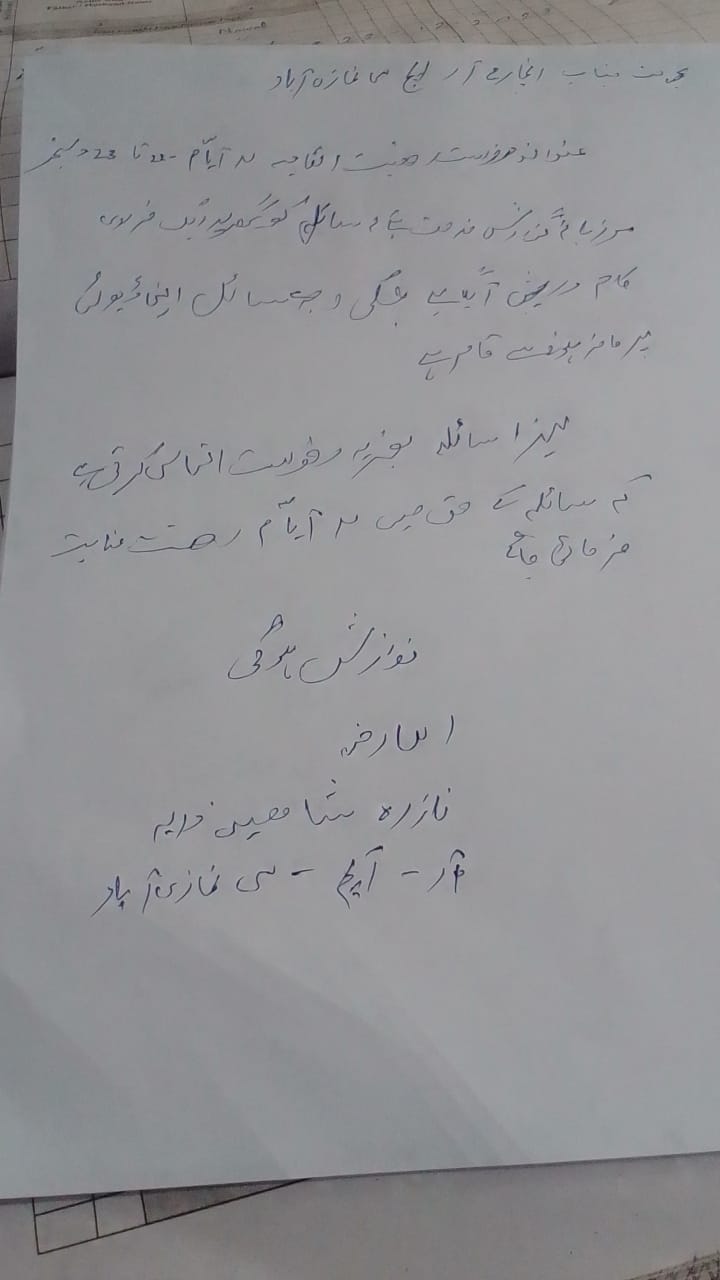 بخدمت جناب انچارج آر ایچ سی غازی آباد
عنوان درخواست رخصت اتفاقیہ آیام 22 تا 23 دسمبر
گزارش خدمت ہے سائلہ کو گھر پر ایک ضروری
کام درپیش آگیا ہے جسکی وجہ سے سائلہ اپنی ڈیوٹی
پر حاضر ہونے سے قاصر ہے
لہذا سائلہ بذریہ درخواست التماس کرتی ہے
کہ سائلہ کے حق میں آیام رخصت عنایت
فرمائی جائے
نوازش ہوگی
العارض
شاہین دایہ
آر - آیچ - سی غازی آباد